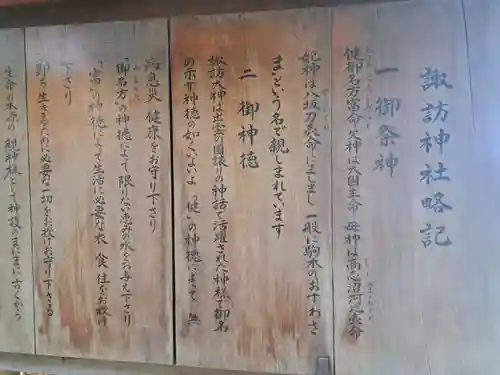 諏訪神社略記
一 御祭神
健御名方富命 父神は大国主命 母神は高志沼河比売命
妃神は八坂刀売命にましまし 一般に駒木のおすわさ
まという名で親しまれています
二 御神徳
諏訪大神は出雲の国譲りの神話で活躍された神様で御名
の示す神徳の如くないよ「健」の神徳によって 無
病息災 健康をお守り下さり
「御名方」の神徳によって限りない恵みの水をお与え下さり
「富」の神徳によって生活に必要な衣 食 住をお授け
下さり
即ち生きるために必要な一切をお授けお守り下さる
生命の水源の親神様として神護のまにまに